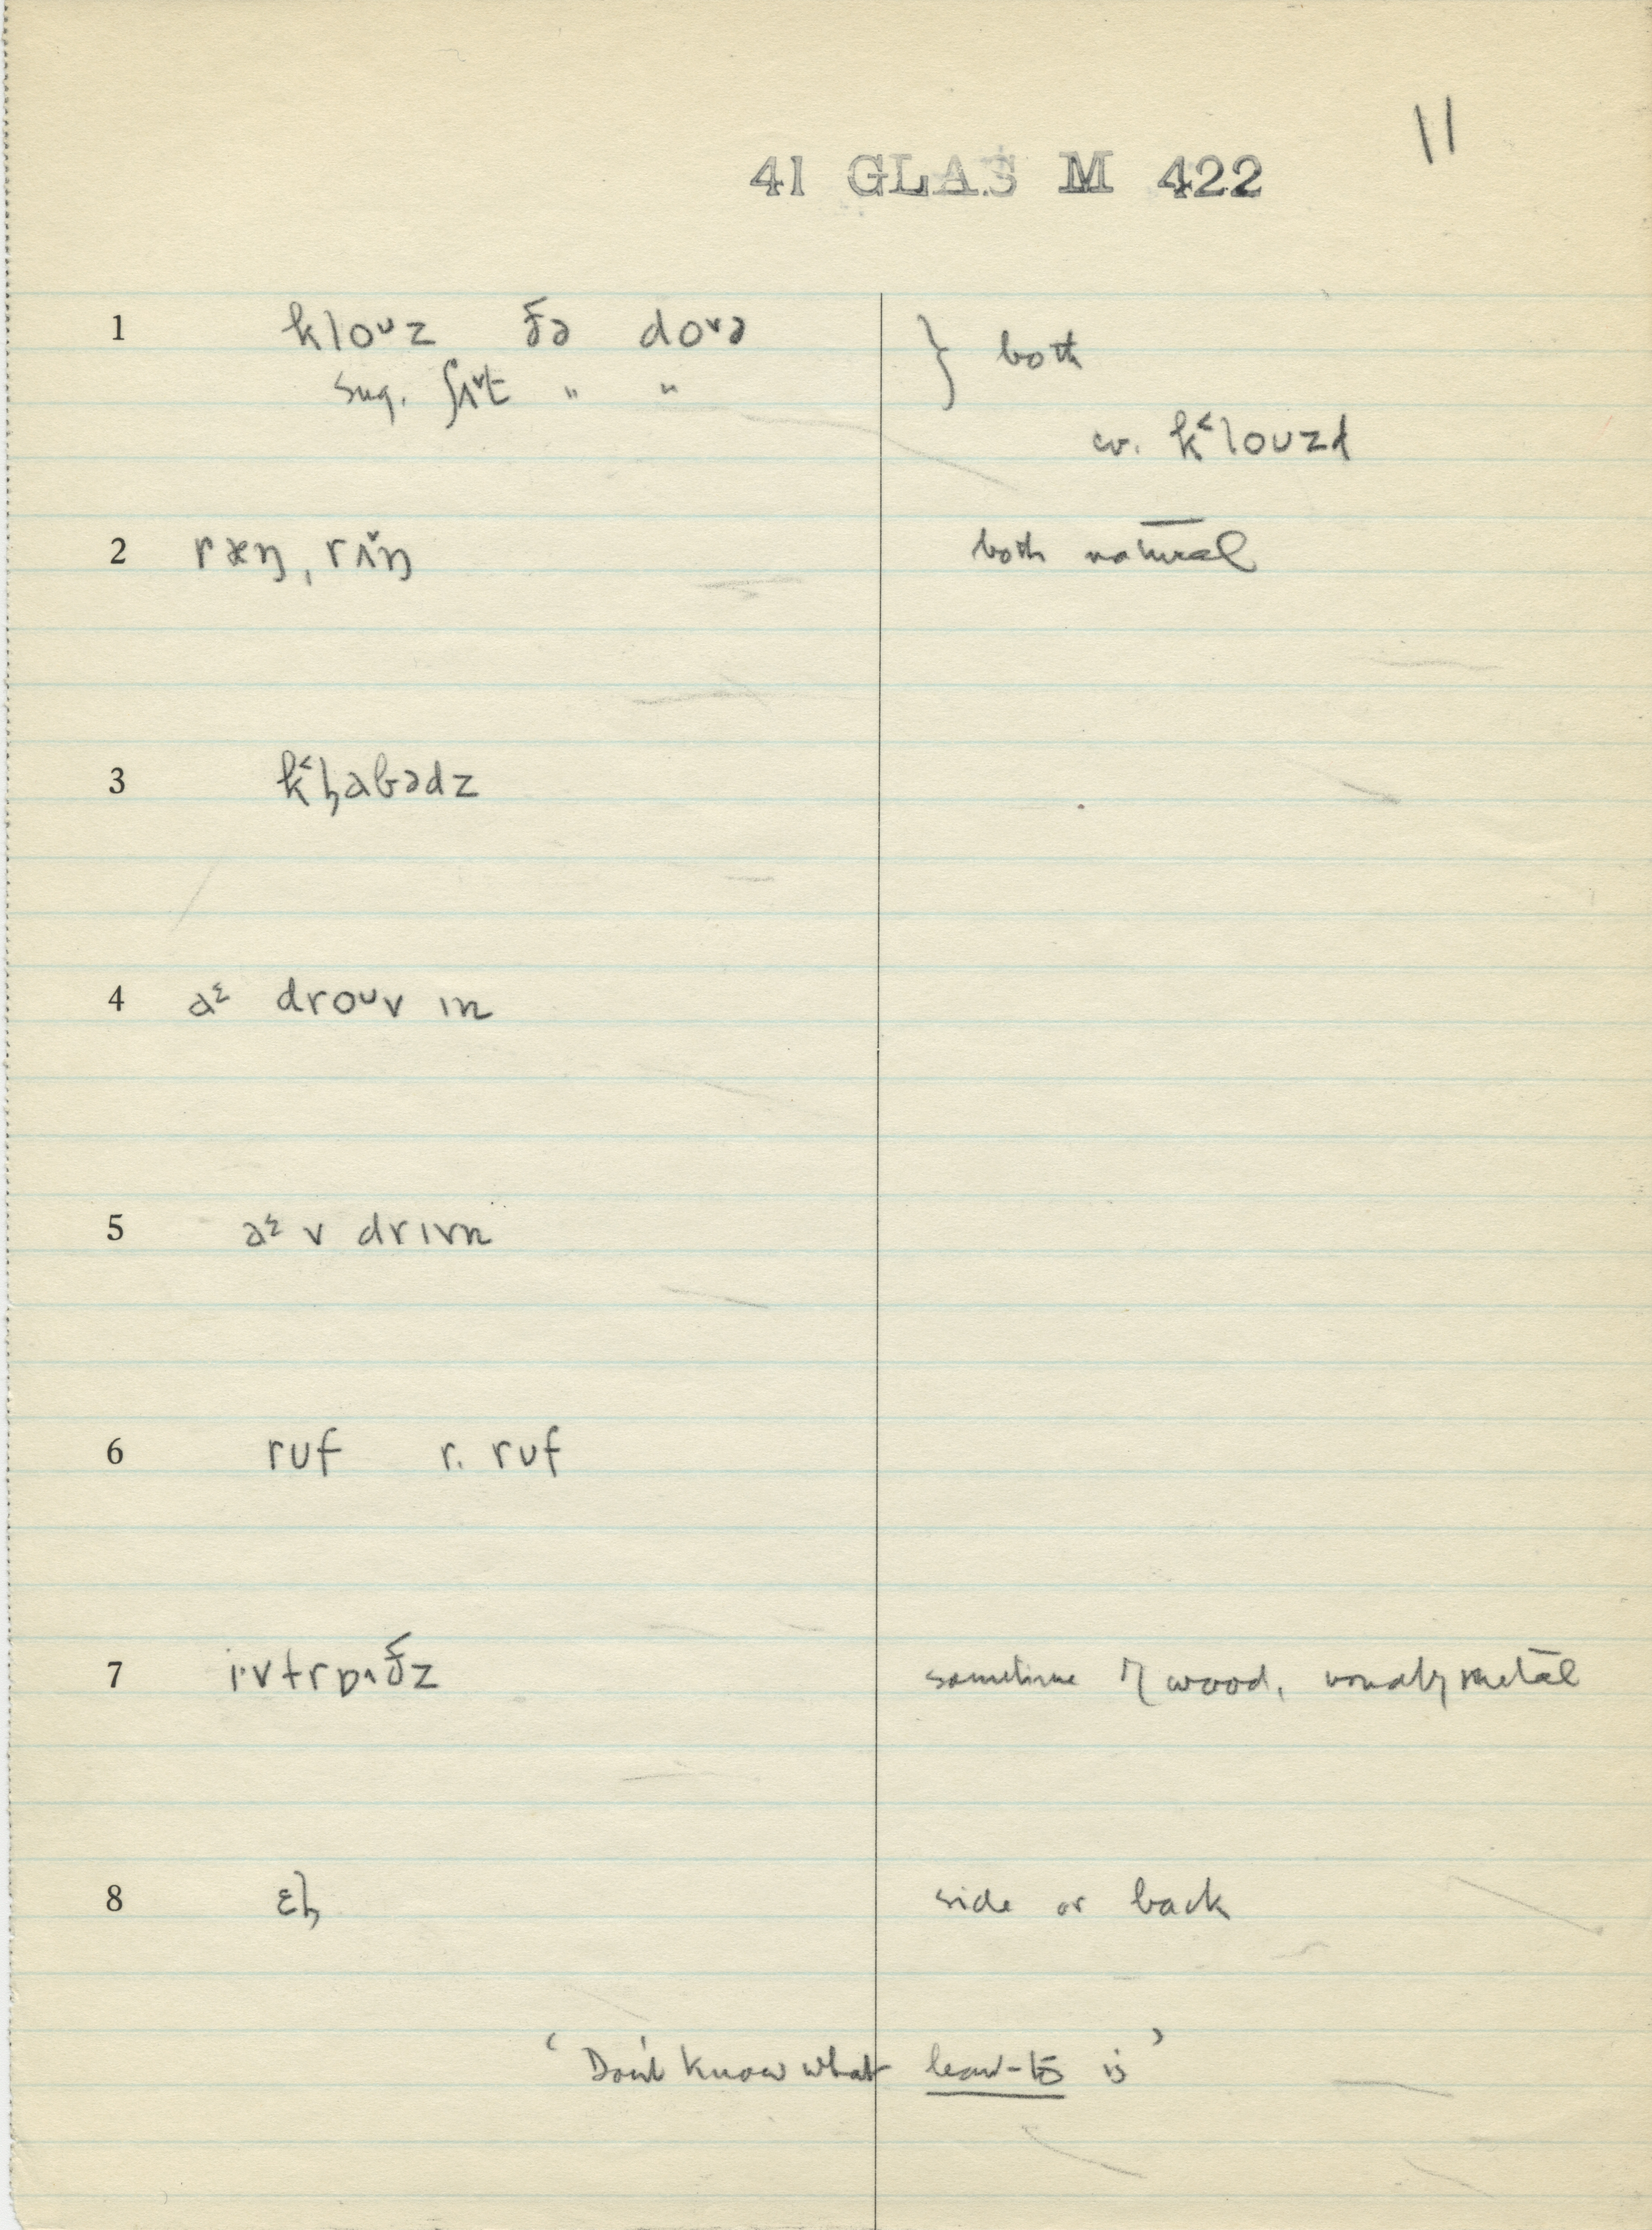 11
41 GLAS M 422
1 kloᴜz ðə doᵛə } both
sug. ʃʌ˅t " "
cv. k˂loᴜzd
2 ræŋ, rʌ˅ŋ both natural
3 k˂l̡abədz
4 a꙼ɛ droᴜv ɪn
5 əɛ v drɪvn
6 ruf r. ruf
7 i·vtrɒ·ðz sometime of wood, usually metal
8 ɛl̡ side or back
‘Don't know what lean-to is’